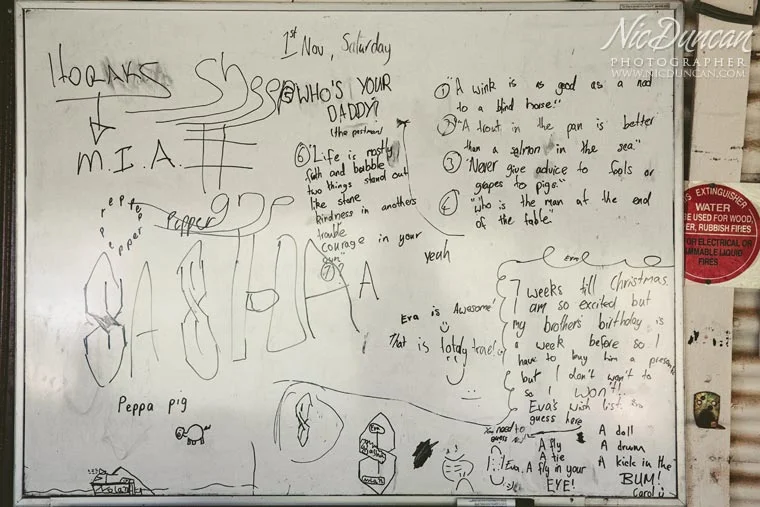 NicDuncan
PHOTOGRAPHER
WWW.NICDUNCAN.COM
1st Nov, Saturday
M.I.A.
⑤ WHO'S YOUR
DADDY?
(the postman)
⑥ "Life is mostly
froth and bubble
two things stand out
like stone
Kindness in anothers
trouble
courage in your
own"
⑦?
① "A wink is as good as a nod
to a blind horse."
② "A trout in the pan is better
than a salmon in the sea."
③ "Never give advice to fools or
grapes to pigs."
④ "Who is the man at the end
of the table"
yeah
pepper
Pepper
SASHA
A
Peppa pig
Eva is Awesome!
That is totaly true
7 weeks till Christmas.
I am so excited but
my brothers birthday is
a week before so I
have to buy him a present
but I don't won't to
so I WON'T!
Eva's wish list.
guess here
You need to
guess
A fly
A tie
A fly in your
EYE!
A doll
A drum
A kick in the
BUM!
Carol
EXTINGUISHER
WATER
BE USED FOR WOOD,
ER, RUBBISH FIRES
FOR ELECTRICAL OR
AMMABLE LIQUID
FIRES